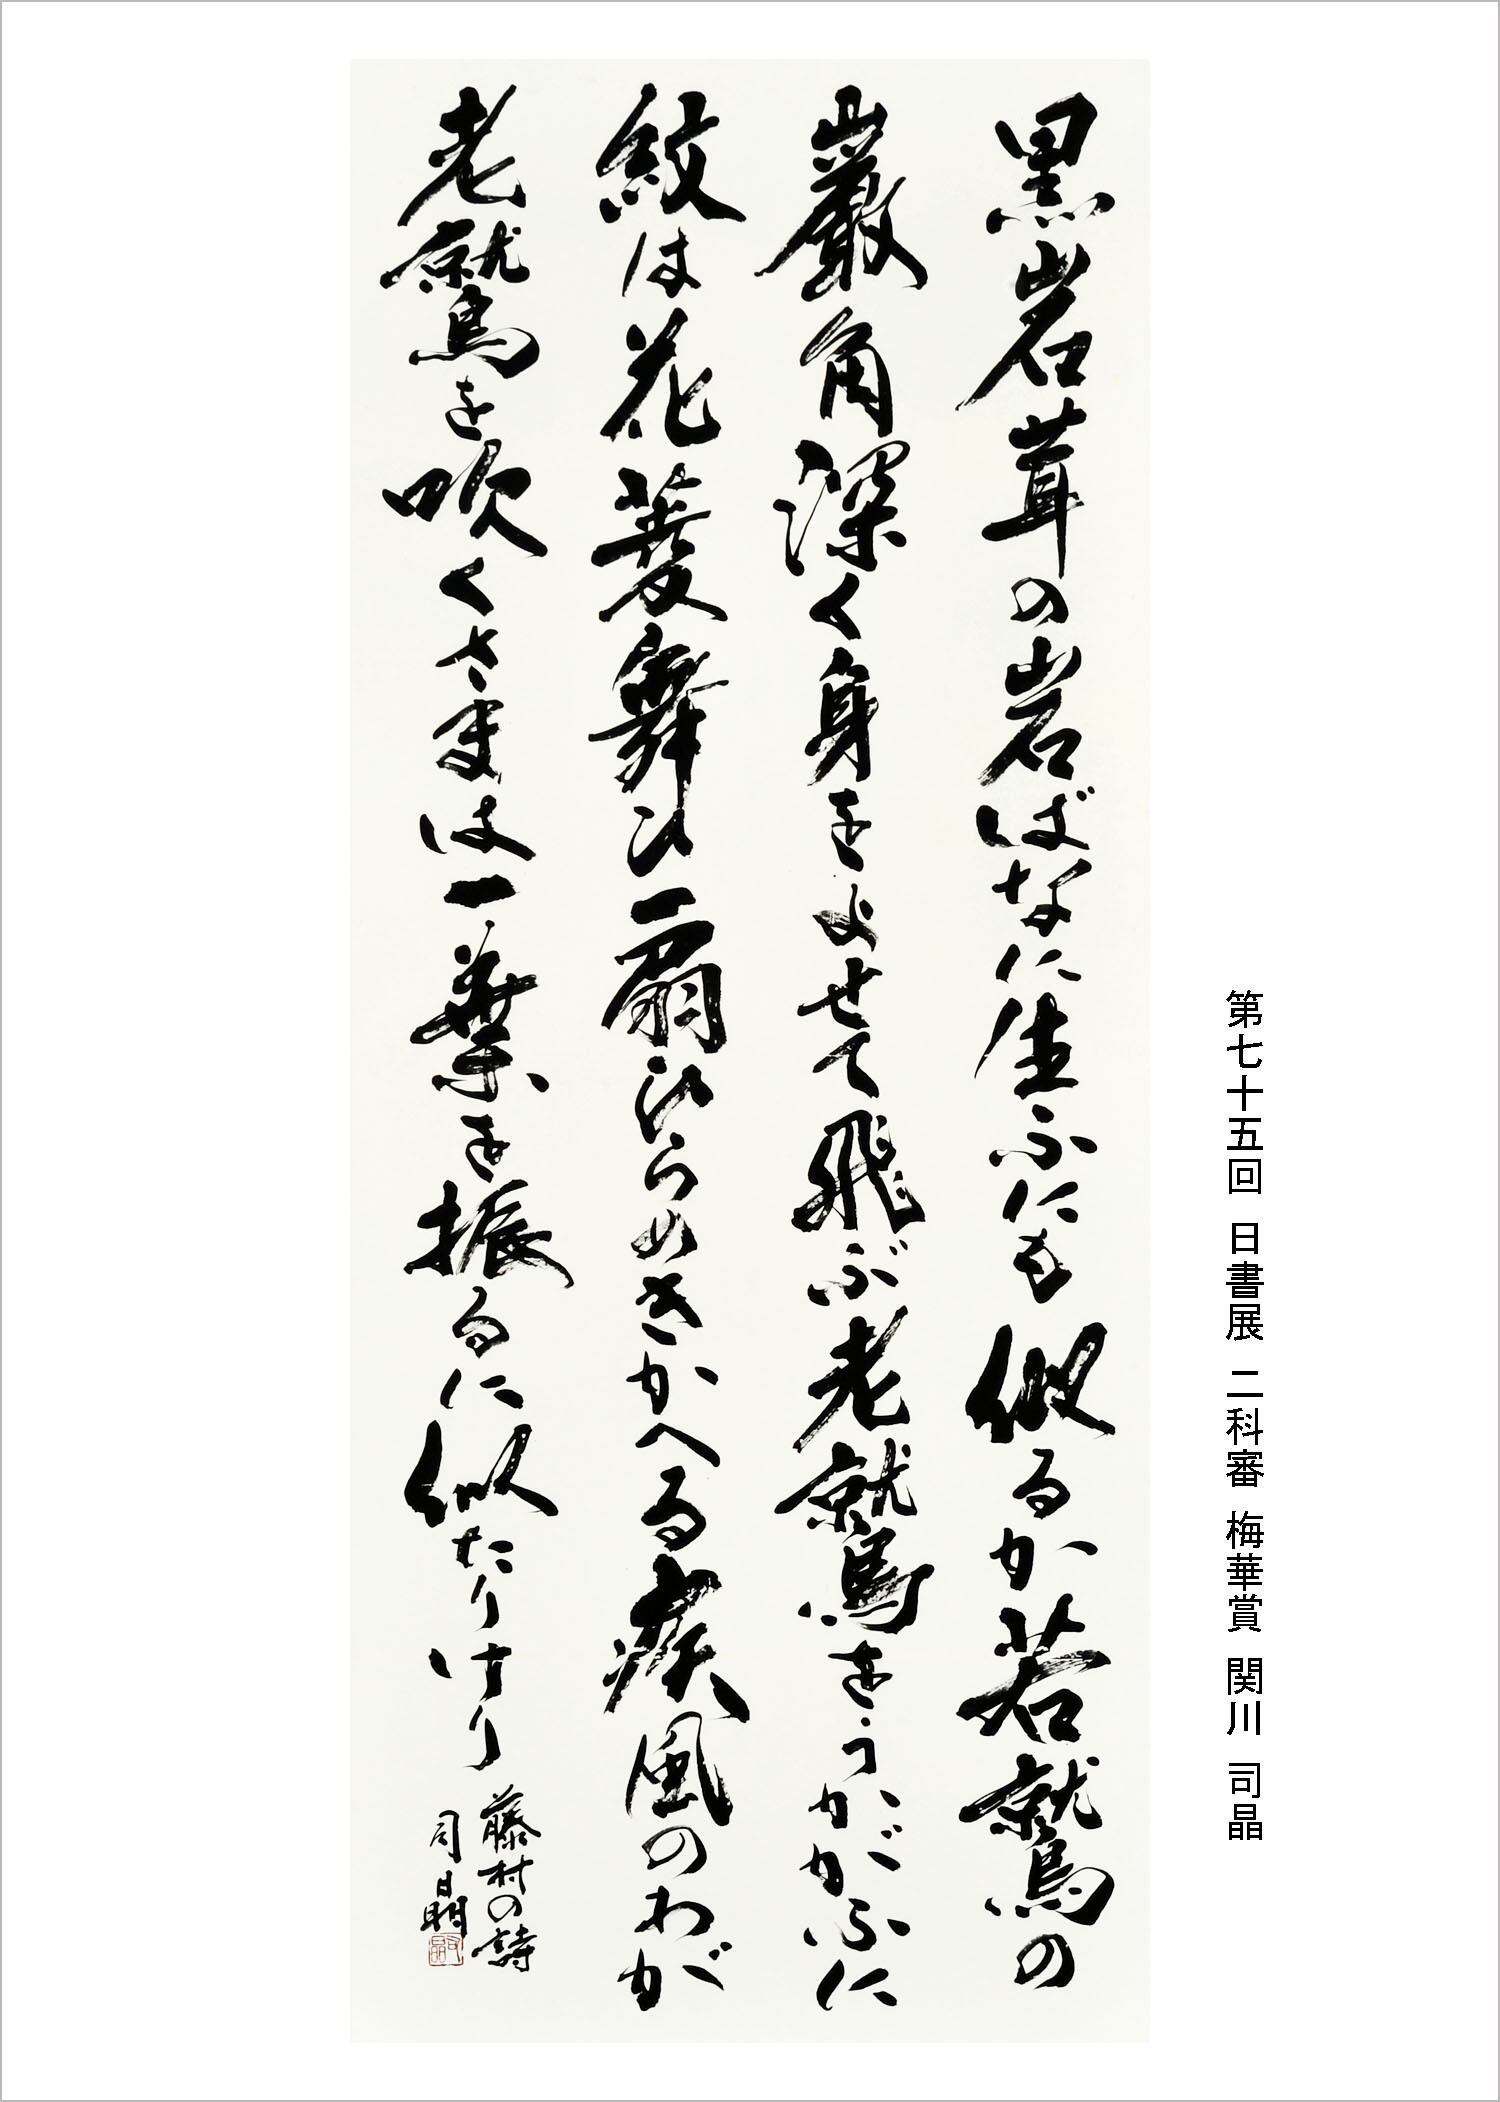 第七十五回 日書展 二科審 梅華賞 関川 司晶
黒岩茸の岩ばなに生ふにも似るか若鷲の
巌角深く身をよせて飛ぶ老鷲をうかがふに
紋は花菱舞ひ扇ひらめきかへる疾風のわが
老鷲を吹くさまは一葉を振るに似たりけり
藤村の詩
司晶